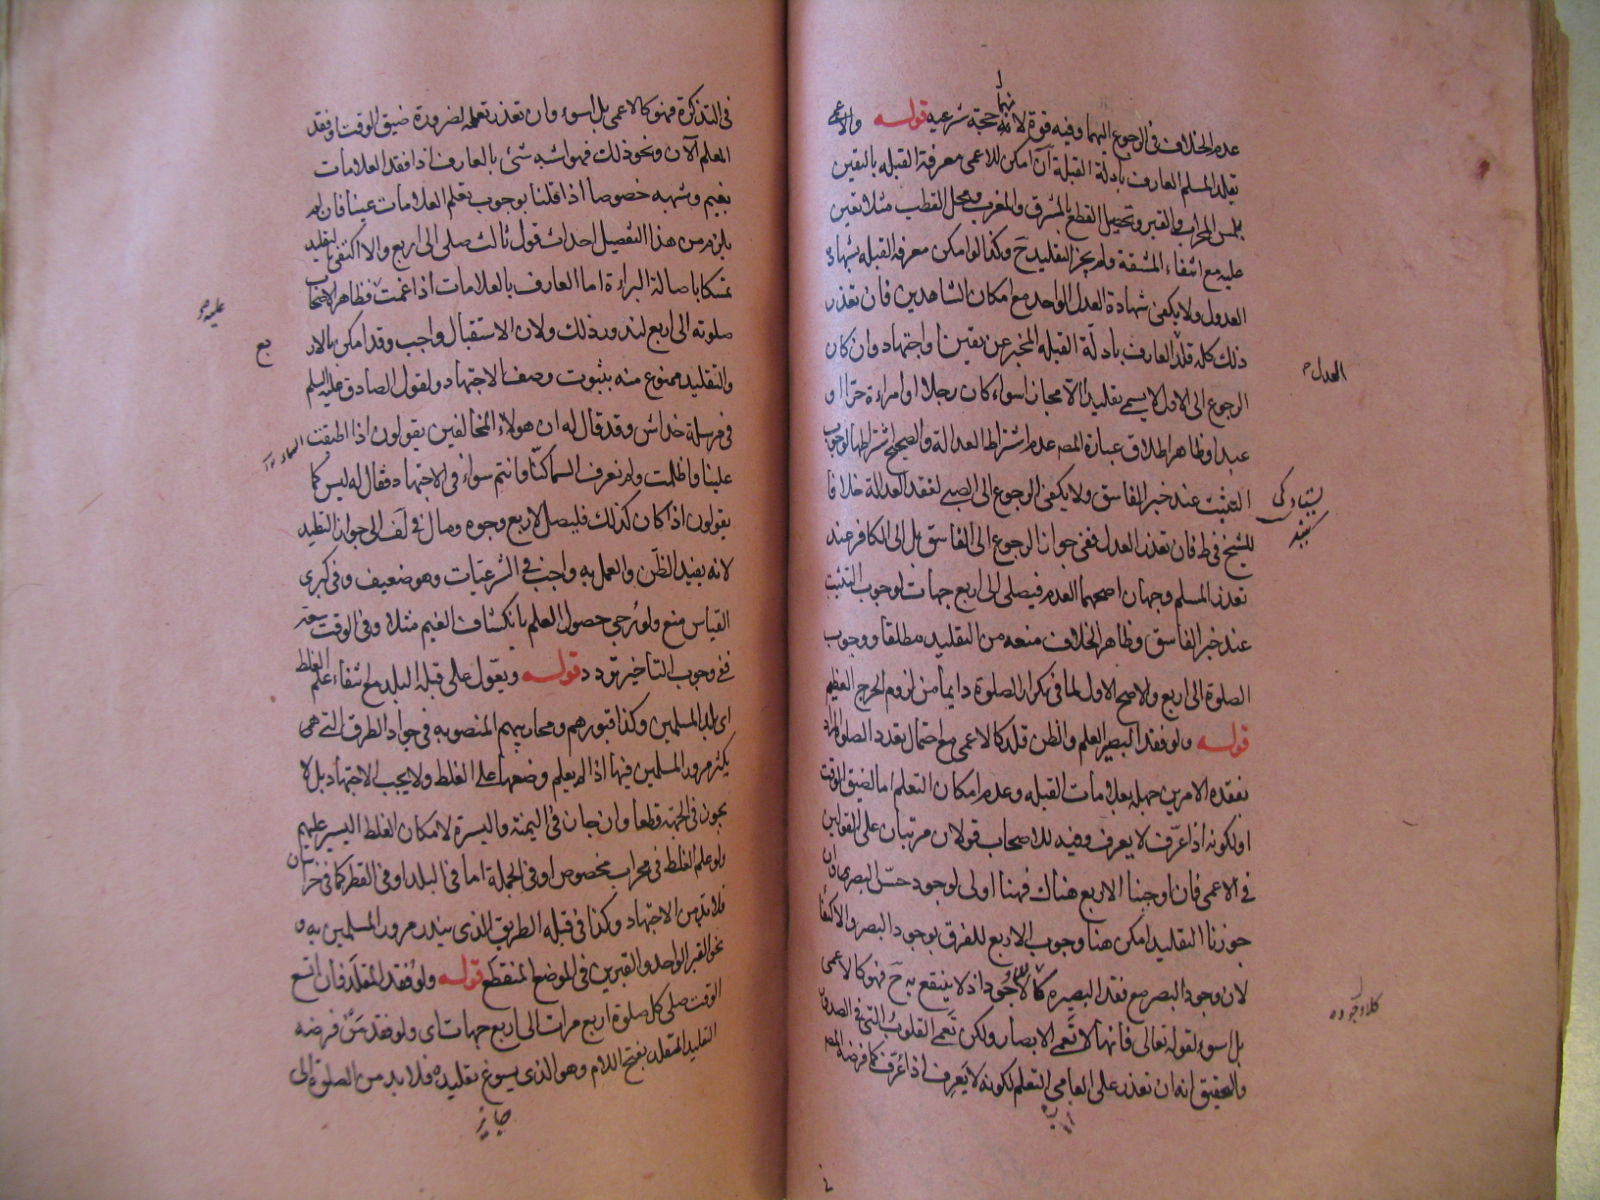 عدم الخلاف في الرجوع اليهما وفيه قوة لانهما حجة شرعية قوله والاعمى
يقلد المسلم العارف بادلة القبلة ان امكن للاعمى معرفة القبله باليقين
بلمس المحراب والقبر وتحصيل القطع بالمشرق والمغرب ومحل القطب مثلا تعين
عليه مع انتفاء المشقة ولم يجز التقليد ح وكذا لو امكن معرفة القبله بشهادة
العدول ولا يكفى شهادة العدل الواحد مع امكان الشاهدين فان تعذر
ذلك كله قلد العارف بادلة القبله المخبر عن يقين او اجتهاد وان كان
الرجوع الى الاول لا يسمى تقليدا الا مجازا سواء كان رجلا او امراءة حرا او
عبدا وظاهر اطلاق عبارة المصه عدم اشتراط العدالة والصحيح اشتراطها لوجوب
التثبت عند خبر الفاسق ولا يكفى الرجوع الى الصبى لفقد العدالة خلافا
للشيخ في ط فان تعذر العدل ففى جواز الرجوع الى الفاسق بل الى الكافر عند
تعذر المسلم وجهان اصحهما العدم فيصلى الى اربع جهات لوجوب التثبت
عند خبر الفاسق وظاهر الخلاف منعه من التقليد مطلقا ووجوب
الصلوة الى اربع والاصح الاول لما في تكرار الصلوة دايما من لزوم الحرج العظيم
قوله ولو فقد البصير العلم والظن قلد كالاعمى مع احتمال تعدد الصلوة المراد
بفقده الامرين جهله بعلامات القبله وعدم امكان التعلم اما لضيق الوقت
او لكونه اذا عرف لا يعرف وفيه للاصحاب قولان مرتبان على القولين
في الاعمى فان اوجبنا الاربع هناك فهنا اولى لوجود حس البصر هنا وان
جوزنا التقليد امكن هنا وجوب الاربع للفرق بوجود البصر والاكتفا
لان وجود البصر مع فقد البصيرة كلا وجود اذ لا ينتفع به ح فهو كالاعمى
بل اسوء لقوله تعالى فانها لا تعمى الابصار ولكن تعمى القلوب التي في الصدور
والتحقيق انه ان تعذر على العامي التعلم لكونه لا يعرف اذا عرف كما فرضه المصه
العدل
كلا وجوده
في التذكرة فهو كالاعمى بل اسوء وان تعذر تعلمه لضرورة ضيق الوقت او فقد
المعلم الآن ونحو ذلك فهو اشبه شئ بالعارف اذا فقد العلامات
بغيم وشبهه خصوصا اذا قلنا بوجوب تعلم العلامات عينا فان لم
يلزم من هذا التفصيل احداث قول ثالث صلى الى اربع والا اكتفى بالتقليد
تمسكا باصالة البراءة اما العارف بالعلامات اذا غمت فظاهر الاصحاب
صلوته الى اربع لندور ذلك ولان الاستقبال واجب وقد امكن بالار
والتقليد ممنوع منه بثبوت وصف الاجتهاد ولقول الصادق عليه السلم
في مرسلة خداش وقد قال له ان هولاء المخالفين يقولون اذا اطبقت
علينا واظلمت ولم نعرف السما كنا وانتم سواء في الاجتهاد فقال له ليس كما
يقولون اذا كان كذلك فليصل لاربع وجوه ومال في لف الى جواز التقليد
لانه يفيد الظن والعمل به واجب في الشرعيات وهو ضعيف وفي كبرى
القياس منع ولو رجى حصول العلم بانكشاف الغيم مثلا وفي الوقت سعة
ففي وجوب التاخير تردد قوله ويعول على قبلة البلد مع انتفاء علم الغلط
اي بلد المسلمين وكذا قبورهم ومحاريبهم المنصوبة في جواد الطرق التي هي
يكثر مرور المسلمين فيها اذا لم يعلم وضعها على الغلط ولا يجب الاجتهاد بل لا
يجوز في الجهة قطعا وان جاز في اليمنة واليسرة لامكان الغلط اليسير عليهم
ولو علم الغلط في محراب مخصوص او في الجملة اما في البلد او في القطر كما في خراسان
فلا بد من الاجتهاد وكذا في قبلة الطريق الذي يندر مرور المسلمين به و
نحو القبر الواحد والقبرين في الموضع المنقطع قوله ولو فقد المقلد فان اتسع
الوقت صلى كل صلوة اربع مرات الى اربع جهات اى ولو فقد من فرضه
التقليد المقلد بفتح اللام وهو الذي يسوغ تقليده فلا بد من الصلوة الى
بع